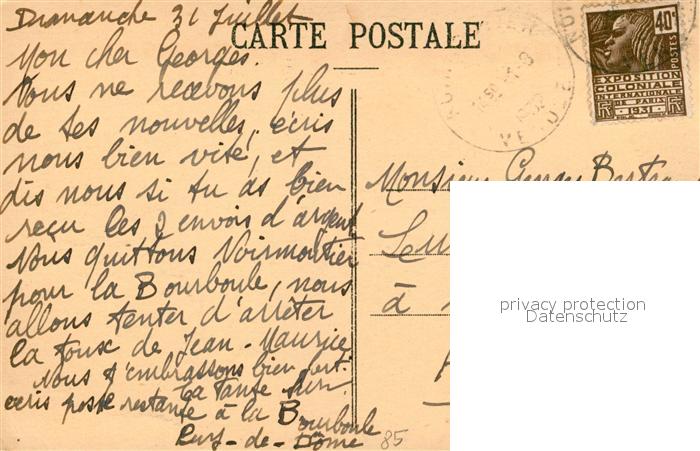 Dimanche 31 Juillet
CARTE POSTALE
40c
POSTES
EXPOSITION
COLONIALE
INTERNATIONALE
DE PARIS
1931
Mon cher Georges.
Nous ne recevons plus
de tes nouvelles, écris
nous bien vite, et
dis nous si tu as bien
reçu les 2 envois d'argent
Nous quittons Noirmoutier
pour la Bourboule, nous
allons tenter d'arrêter
la toux de Jean-Maurice
Nous t'embrassons bien fort.
ta tante
écris poste restante à la Bourboule
Puy-de-Dôme
85
Monsieur
à
privacy protection
Datenschutz